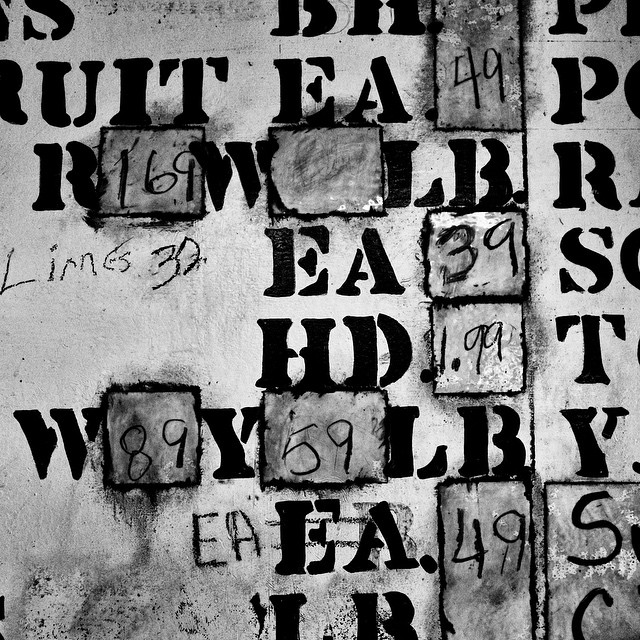 NS BR. P
RUIT EA. 49 PO
R 169 W LB. RA
Limes 3D EA 39 SO
HD. 1.99 TO
W 89 Y 59 LB. Y.
EA EA. 49 S
LB C